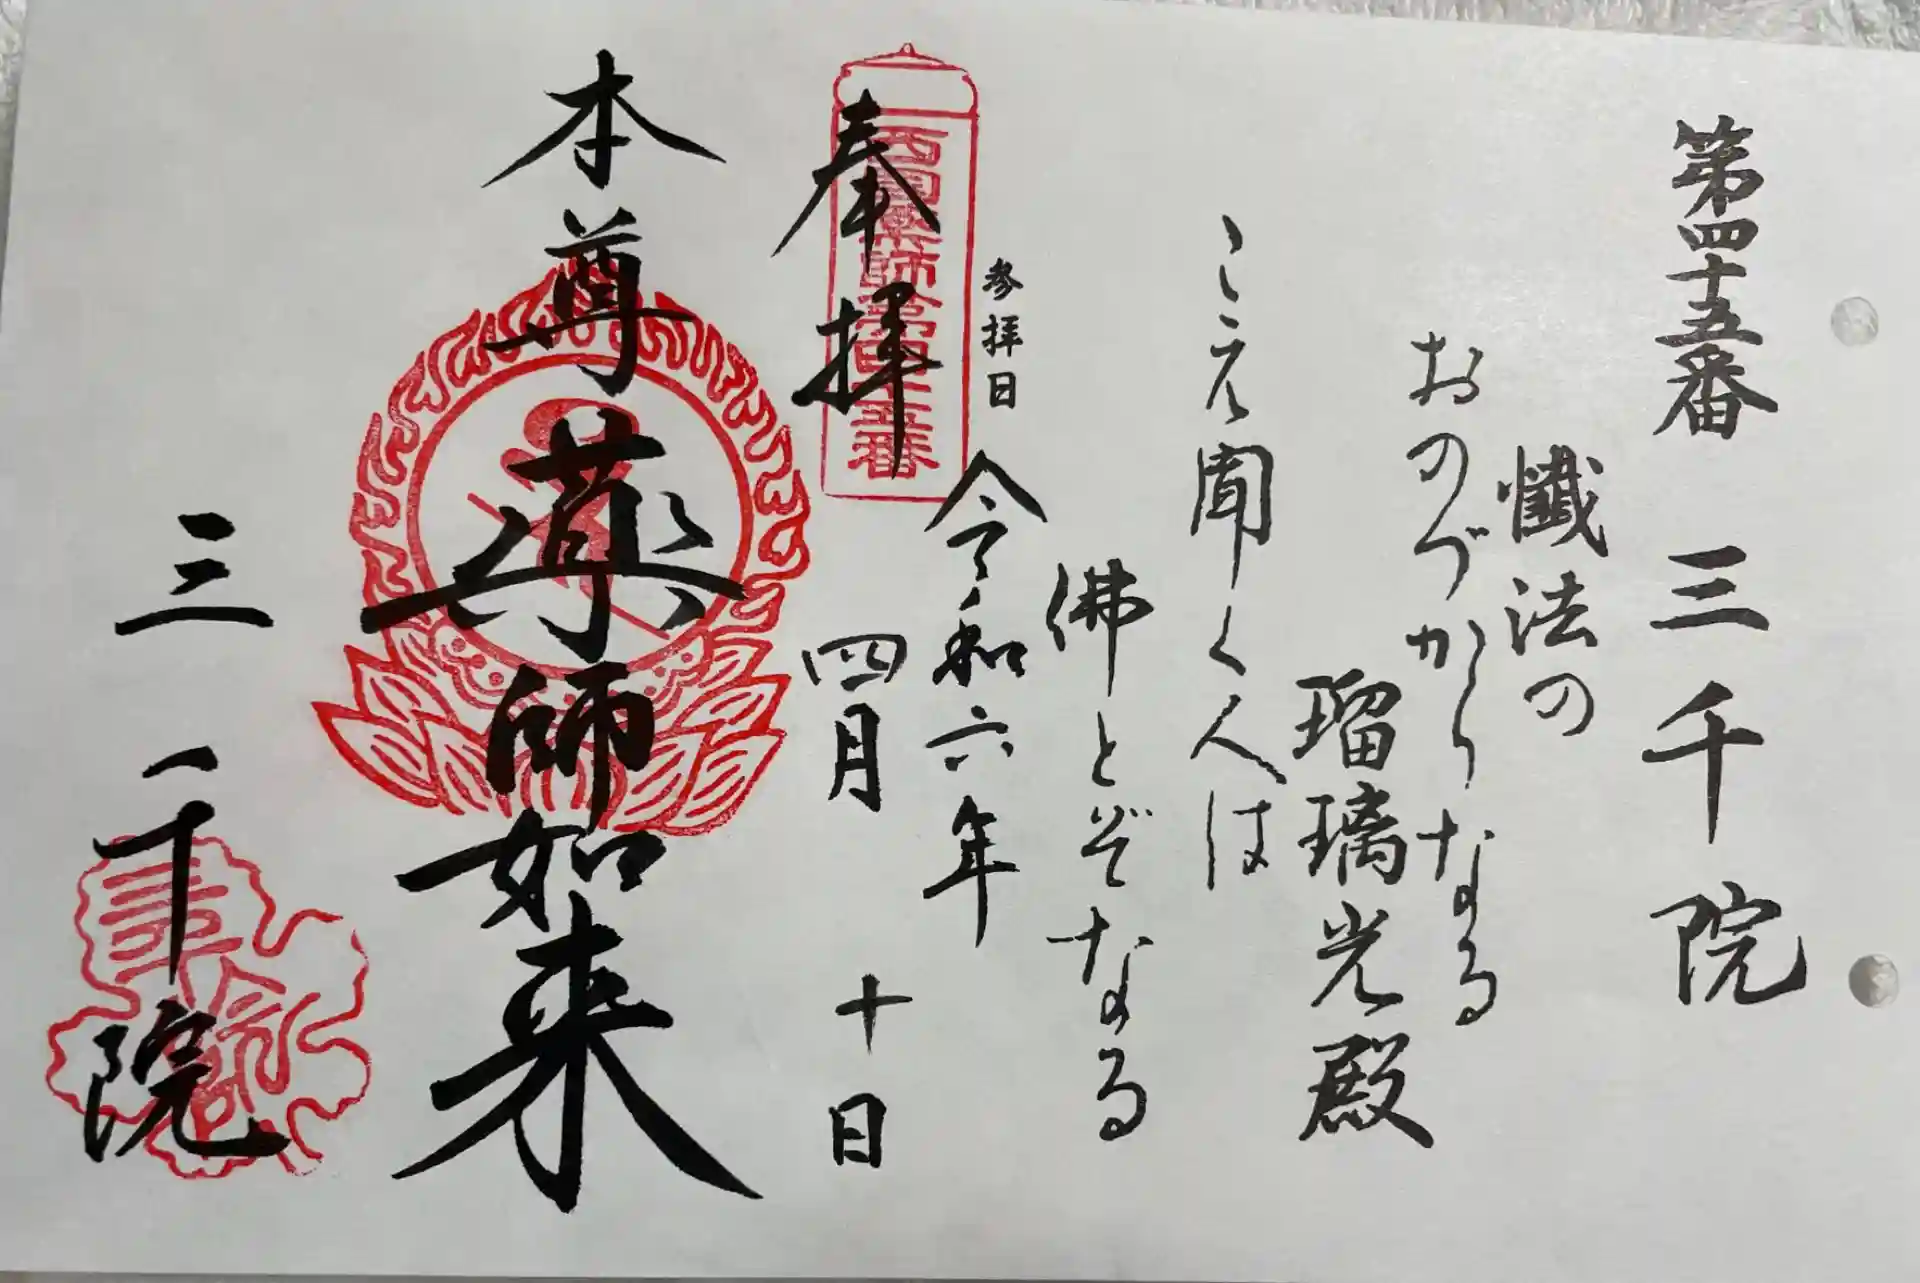 第四十五番 三千院
懺法の
おのづからなる
瑠璃光殿
こえ聞く人は
佛とぞなる
参拝日
令和六年
四月 十日
奉拝
西国薬師第四十五番
本尊薬師如来
三千院